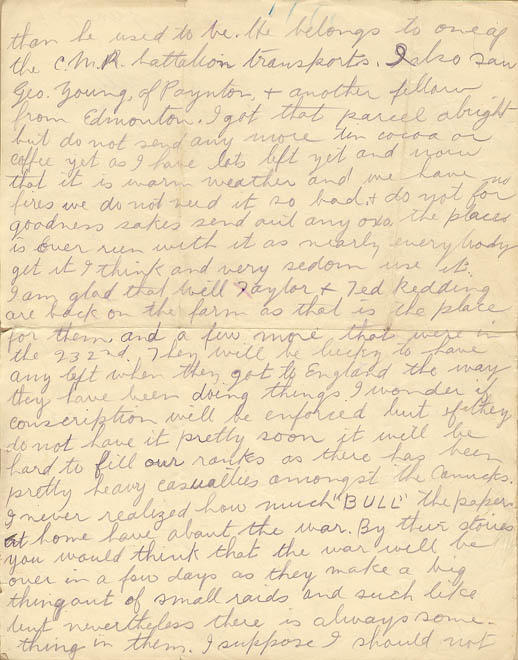 than he used to be. He belongs to one of
the C.M.R. battalion transports. I also saw
Geo. Young, of Paynton, + another fellow
from Edmonton. I got that parcel alright
but do not send any more tin cocoa or
coffee yet as I have lots left yet and now
that it is warm weather and we have no
fires we do not need it so bad, + do not for
goodness sakes send out any oxo, the places
is over run with it as nearly everybody
get it I think and very sedom use it.
I am glad that Will Taylor + Ted Redding
are back on the farm as that is the place
for them, and a few more that were in
the 232nd. They will be lucky to have
any left when they got to England the way
they have been doing things. I wonder if
conscription will be enforced but if they
do not have it pretty soon it will be
hard to fill our ranks as there has been
pretty heavy casualties amongst the Canucks.
I never realized how much "BULL" the papers
at home have about the war. By their stories
you would think that the war will be
over in a few days as they make a big
thing out of small raids and such like
but nevertheless there is always some-
thing in them. I suppose I should not